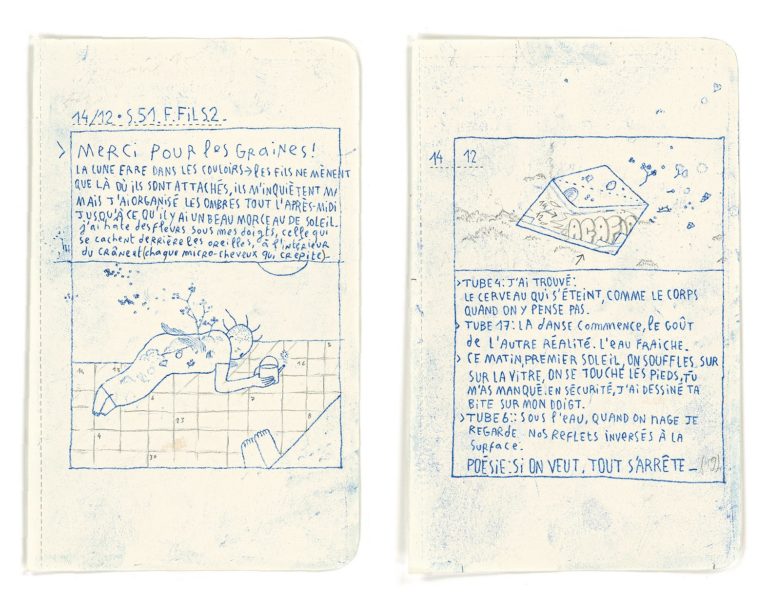 14/12 • S.51 F.FILS.2_
> MERCI POUR les GRAINES!
LA LUNE ERRE DANS LES COULOIRS → LES FILS NE MÈNENT
QUE LÀ OÙ ILS SONT ATTACHÉS, ILS M'INQUIÈTENT
MAIS J'AI ORGANISÉ LES OMBRES TOUT L'APRÈS-MIDI
JUSQU'À CE QU'IL Y AI UN BEAU MORCEAU DE SOLEIL.
j'ai hate des fleurs sous mes doigts, celle qui
se cachent derrière les oreilles, à l'intérieur
du crâne et (chaque micro-cheveux qui crépite)_
14 15 5
13
4
8
30
14 12
> TUBE 4: J'AI TROUVÉ:
LE CERVEAU QUI S'ÉTEINT, COMME LE CORPS
QUAND ON Y PENSE PAS.
> TUBE 17: LA DANSE COMMENCE, LE GOÛT
DE L'AUTRE RÉALITÉ. L'EAU FRAICHE.
> CE MATIN, PREMIER SOLEIL, ON SOUFFLES SUR
SUR LA VITRE, ON SE TOUCHE LES PIEDS, TU
M'AS MANQUÉ. EN SÉCURITÉ, J'AI DESSINÉ TA
BITE SUR MON DOIGT.
> TUBE 6: SOUS L'EAU, QUAND ON NAGE JE
REGARDE NOS REFLETS INVERSÉS À LA
SURFACE.
POÉSIE: SI ON VEUT, TOUT S'ARRÊTE_